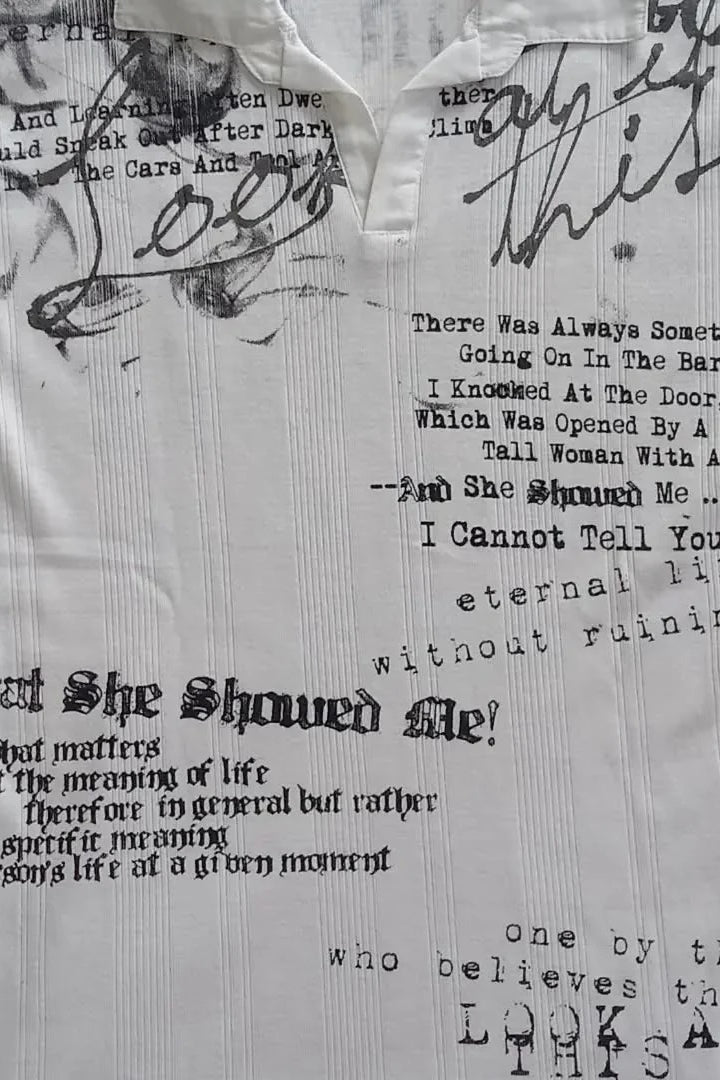 And Learning Often Dwe
Speak Out After Dark
The Cars And Tool
Look
at
this
There Was Always Somet
Going On In The Bar
I Knocked At The Door,
Which Was Opened By A
Tall Woman With A
--And She Showed Me ..
I Cannot Tell You
eternal li
without ruinin
at She Showed Me!
hat matters
t the meaning of life
therefore in general but rather
specific meaning
rson's life at a given moment
one by t
who believes th
LOOK A
THIS